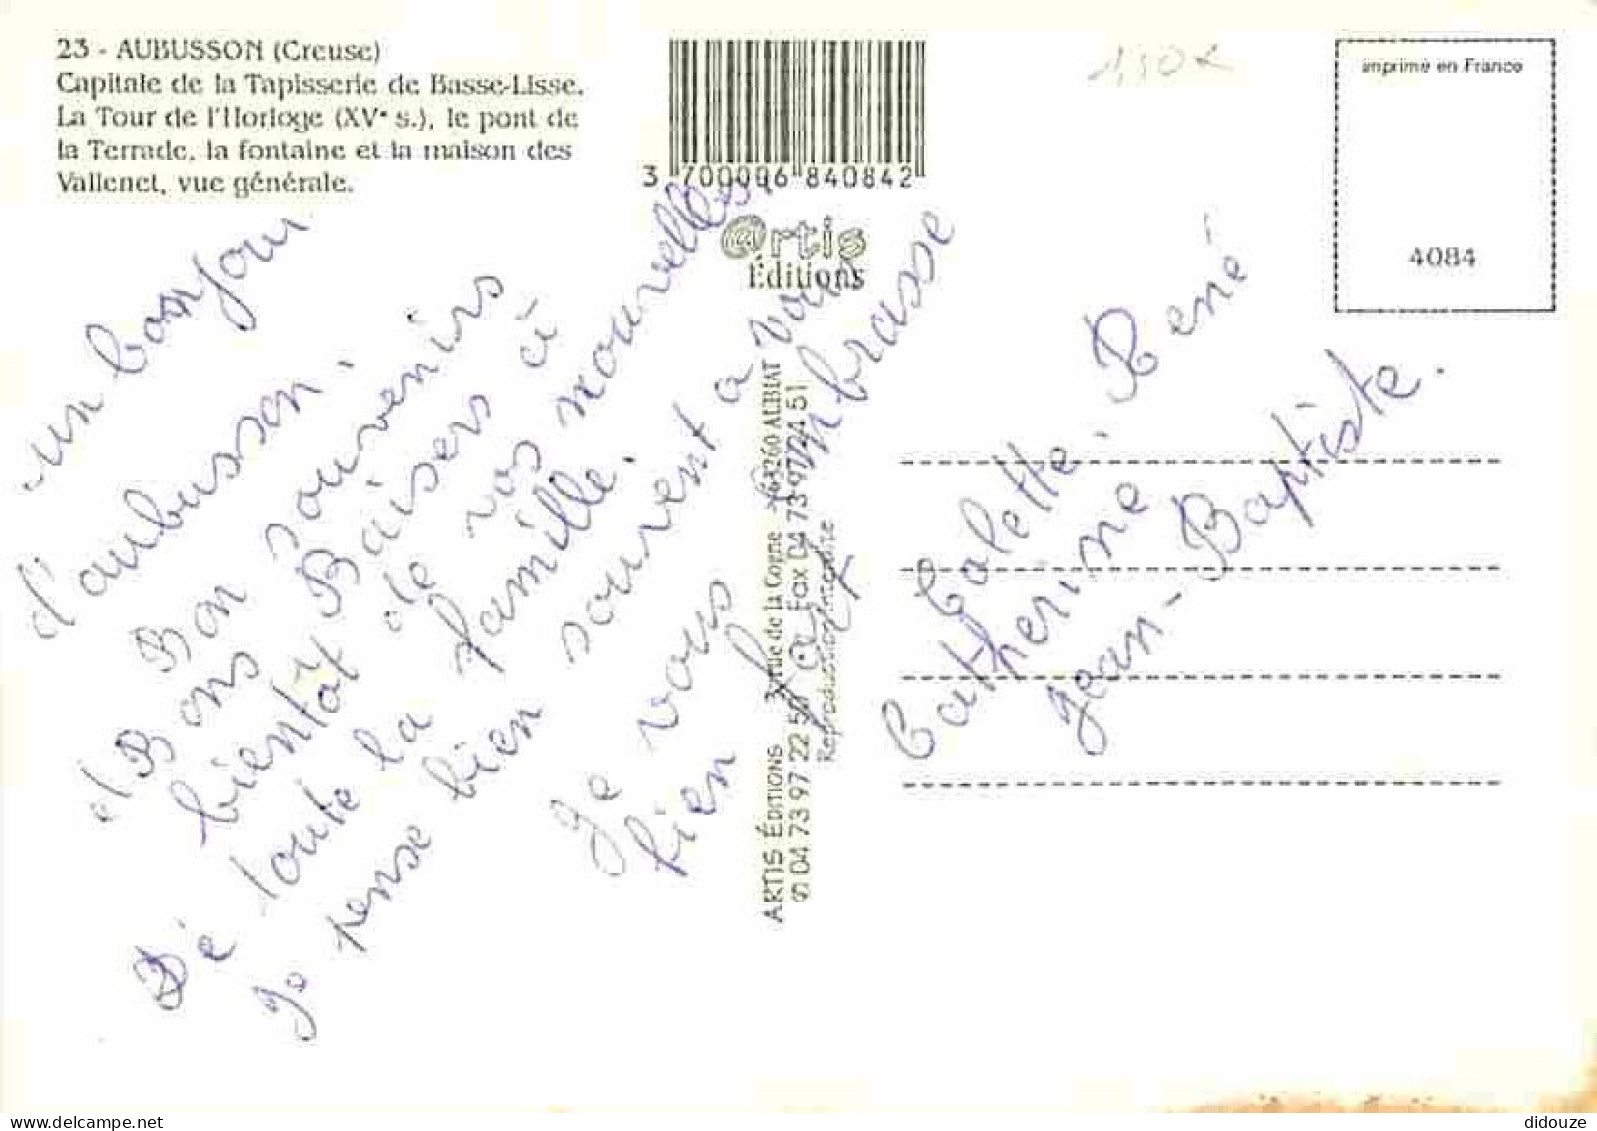 23 - AUBUSSON (Creuse)
Capitale de la Tapisserie de Basse-Lisse.
La Tour de l'Horloge (XVe s.), le pont de
la Terrade, la fontaine et la maison des
Vallenet, vue générale.
3 700006 840842
@rtis
Éditions
1,50
imprimé en France
4084
un bonjour
d'aubusson.
Bon souvenirs
Bons Baisers à
bientôt de vos nouvelles.
Dé toute la famille.
Je pense bien souvent a vous
Je vous
bien fort embrasse
ARTIS ÉDITIONS 3, rue de la Corne 63260 AUBIAT
04 73 97 22 50 Fax 04 73 97 24 51
Reproduction interdite
Colette, René
Catherine
Jean-Baptiste.
didouze